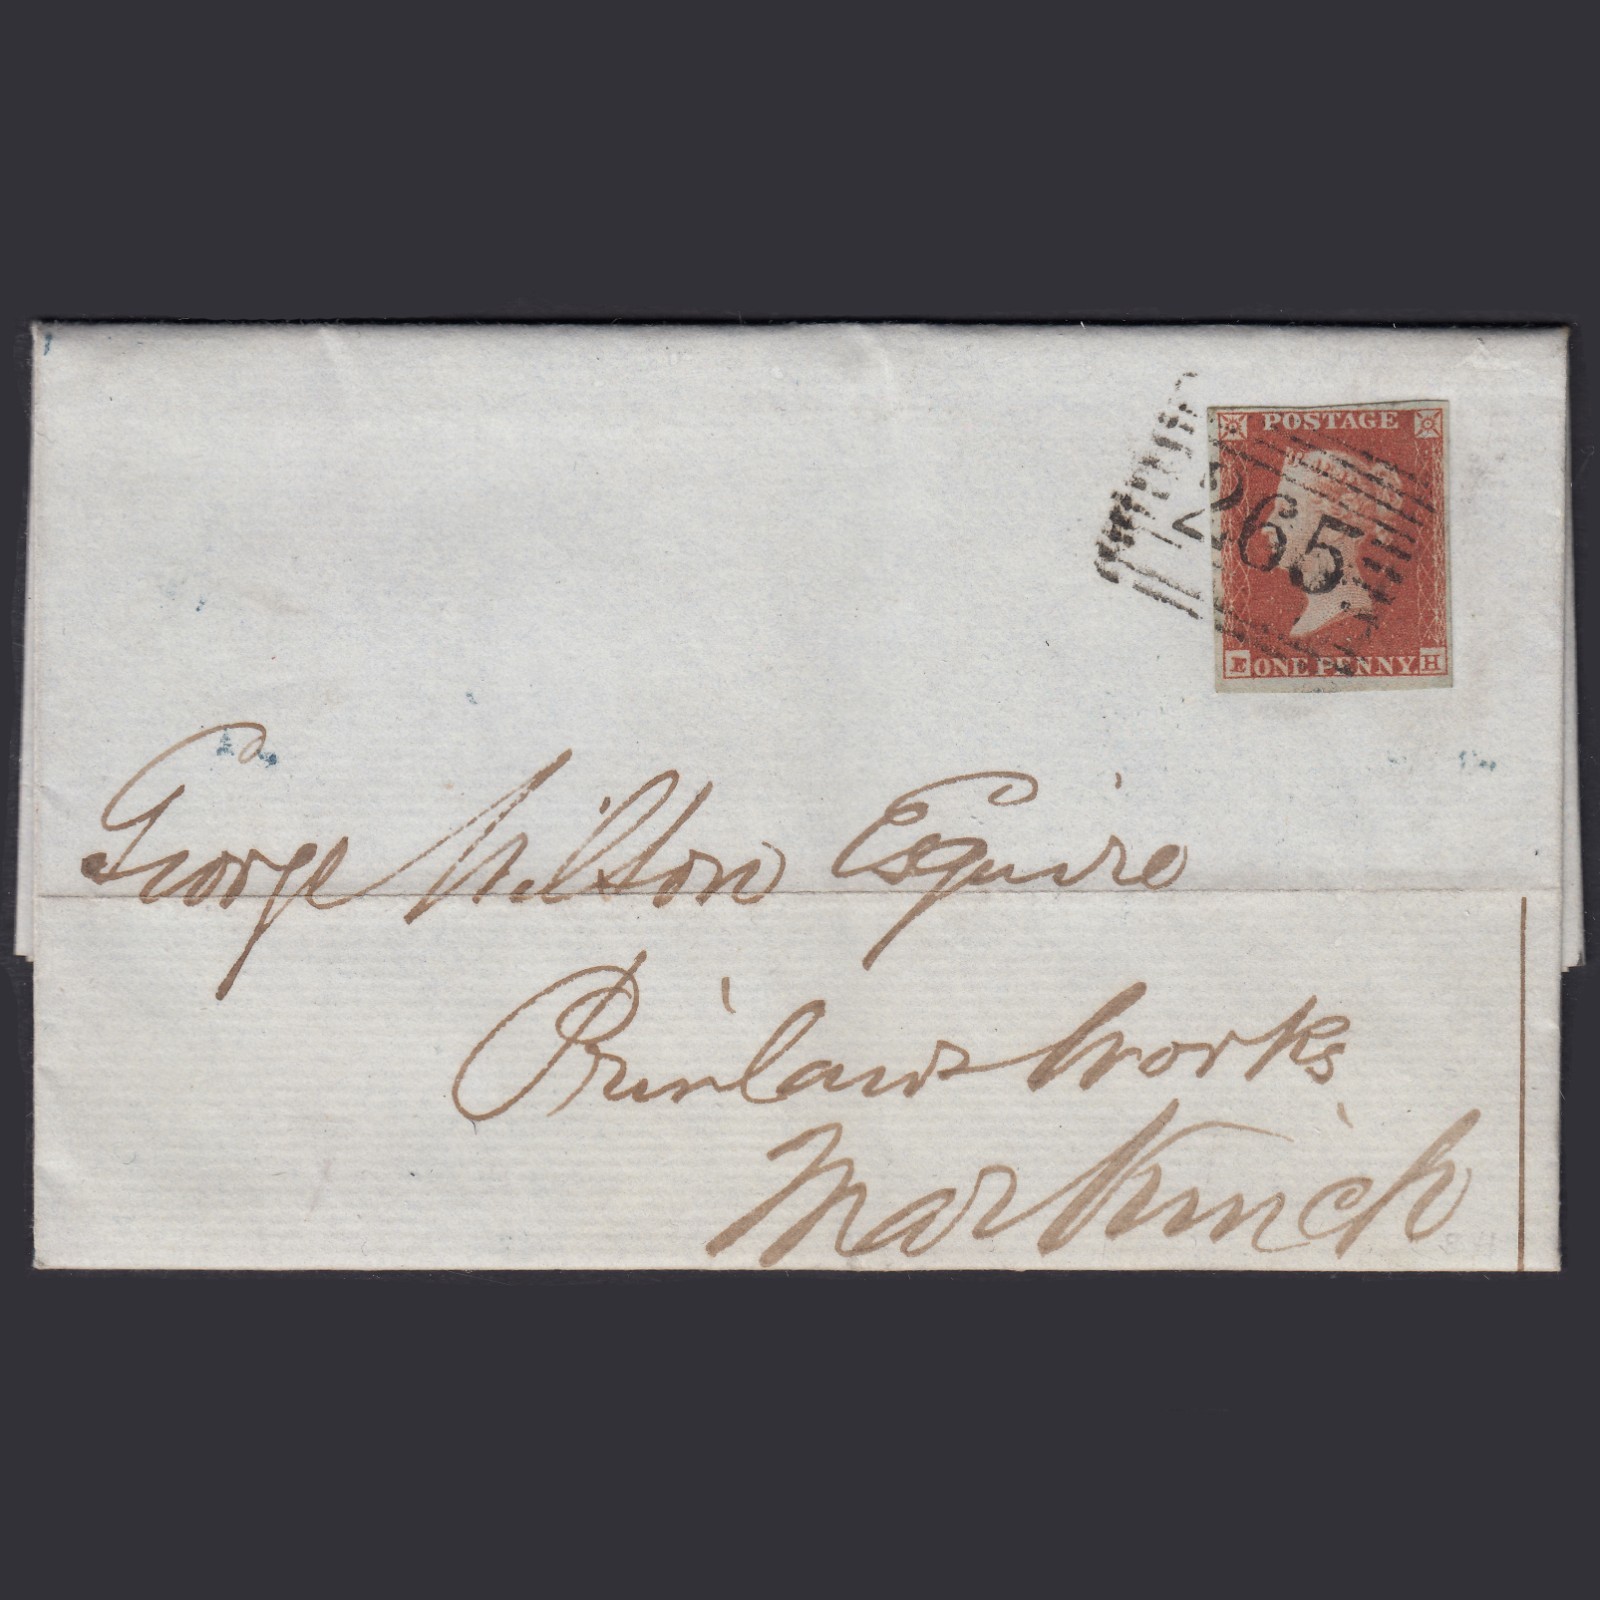 POSTAGE
265
L ONE PENNY. H
George Wilson Esquire
Prinlaws Works
Markinch